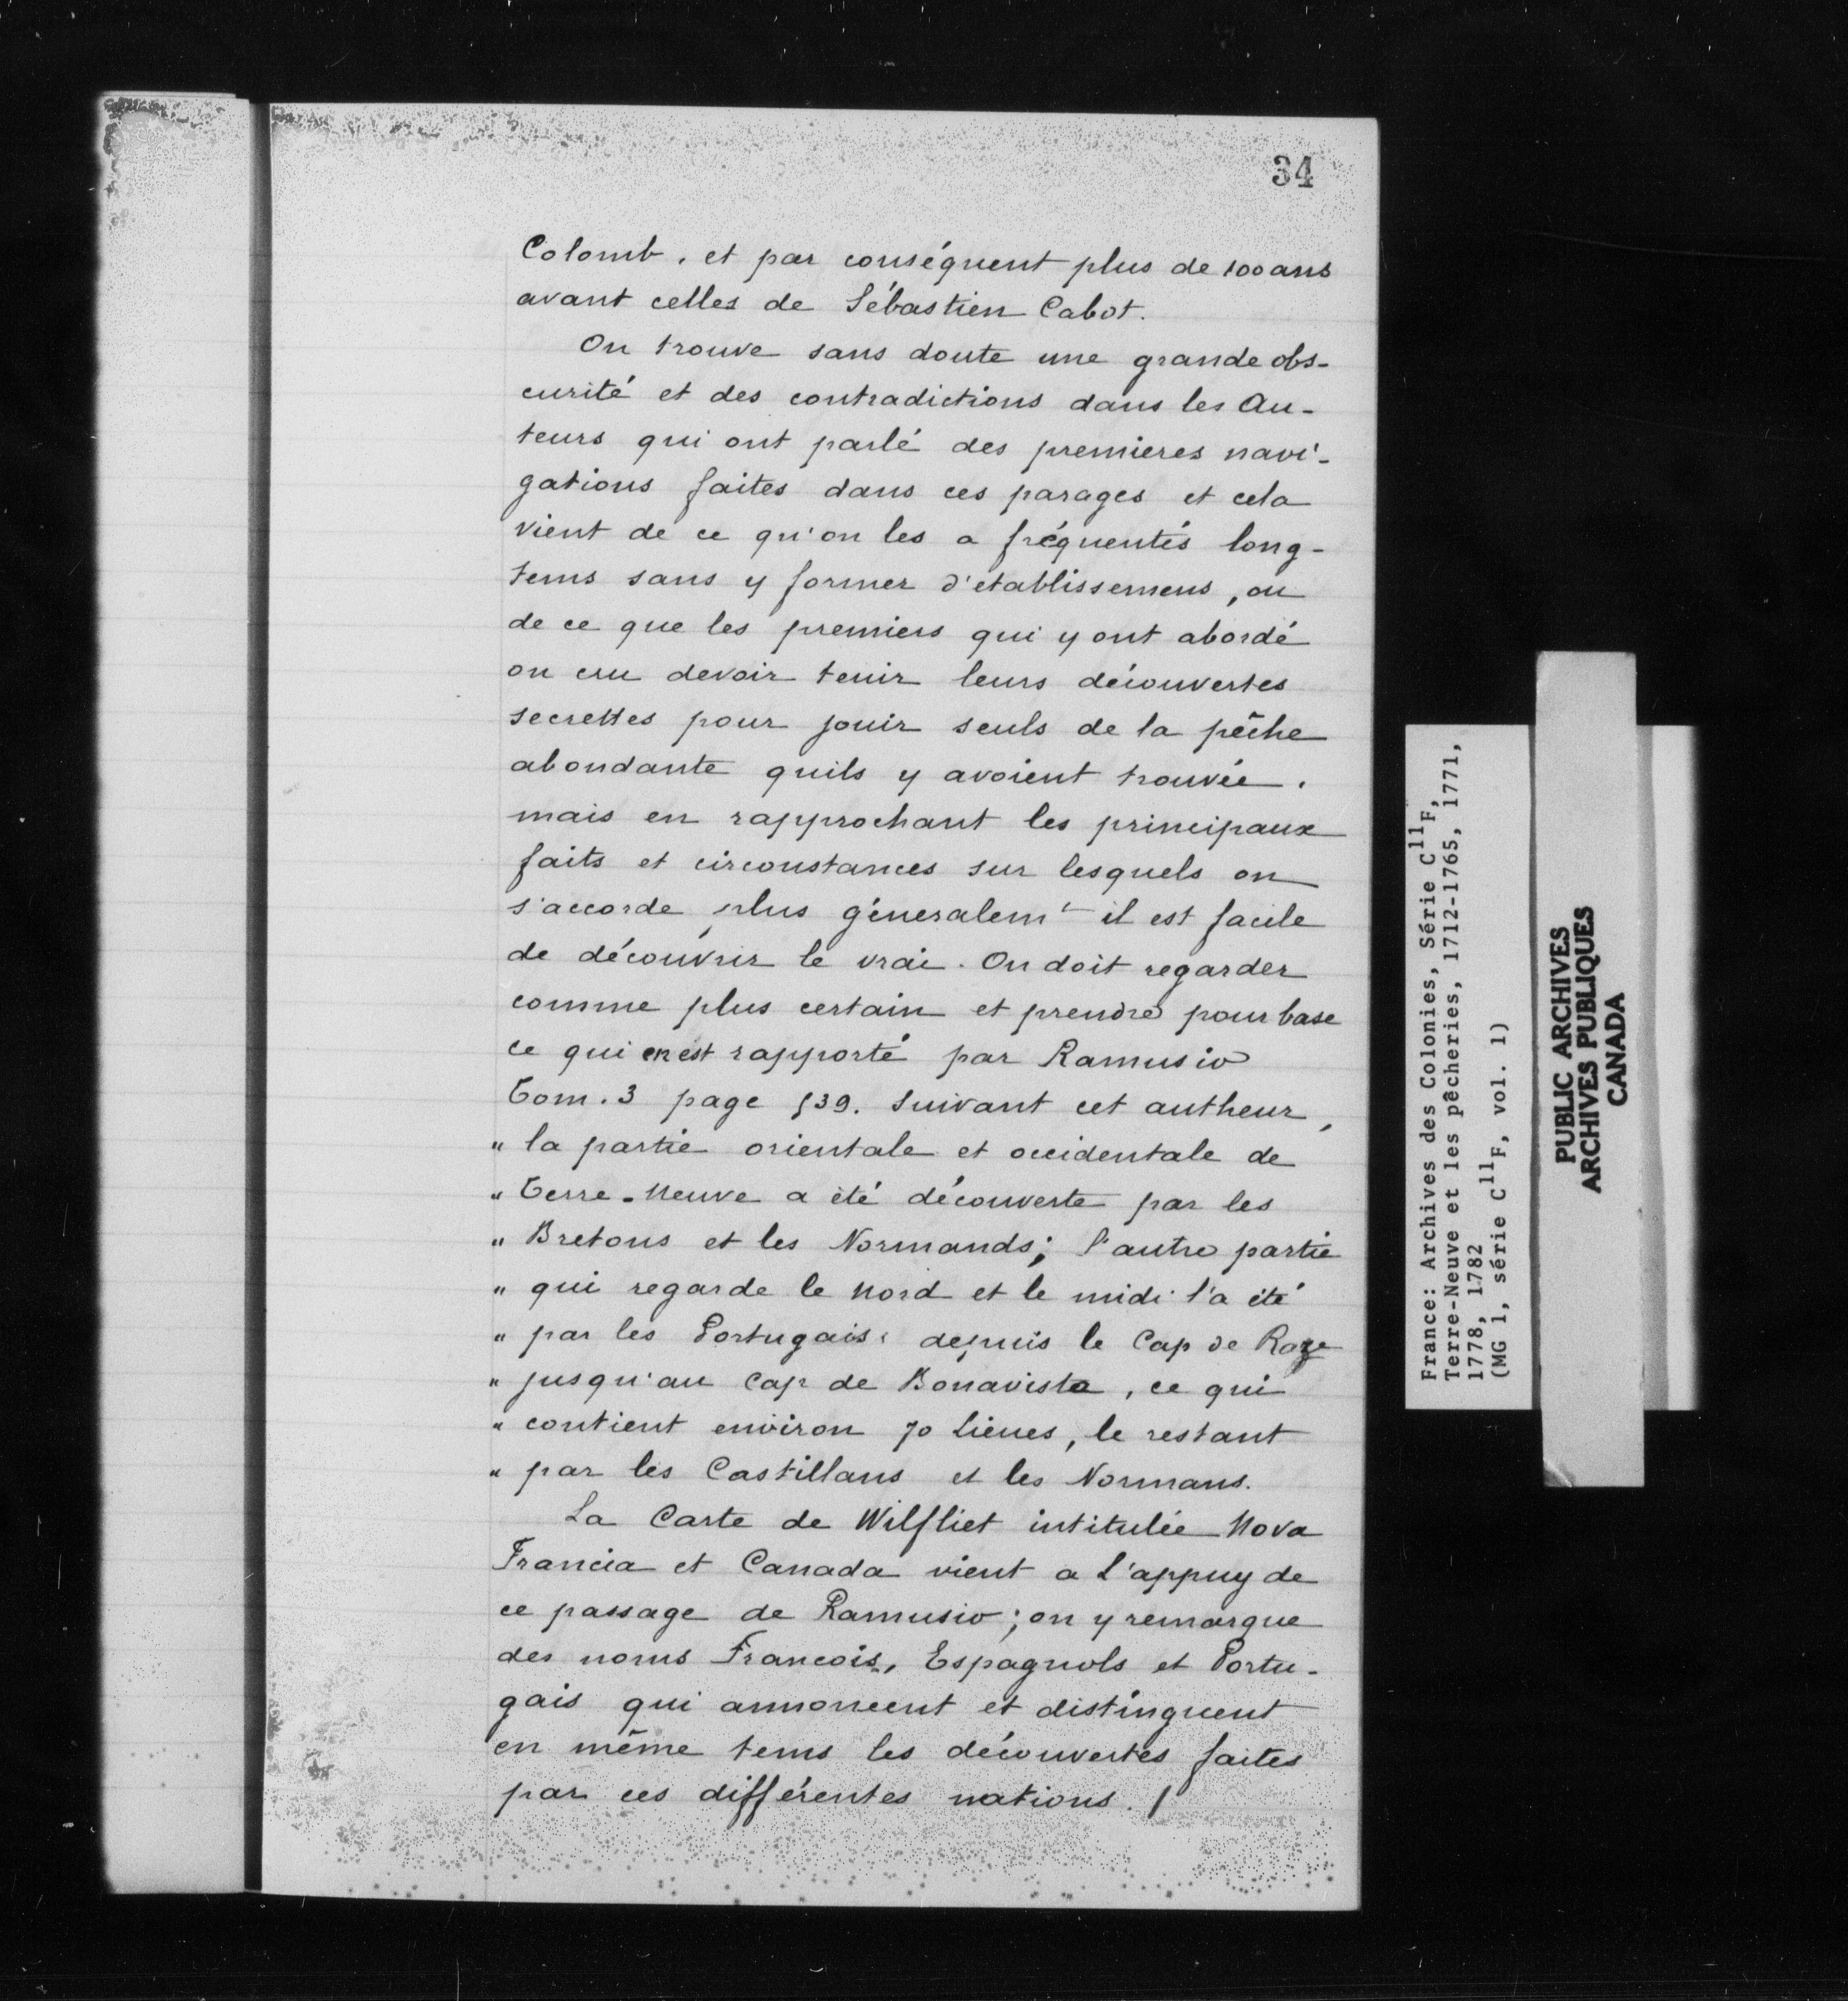 34
Colomb, et par conséquent plus de 100 ans
avant celles de Sébastien Cabot.
On trouve sans doute une grande obs-
curité et des contradictions dans les Au-
teurs qui ont parlé des premieres navi-
gations faites dans ces parages et cela
vient de ce qu'on les a fréquentés long-
tems sans y former d'etablissemens, ou
de ce que les premiers qui y ont abordé
on cru devoir tenir leurs découvertes
secrettes pour jouir seuls de la pêche
abondante quils y avoient trouvée.
mais en rapprochant les principaux
faits et circonstances sur lesquels on
s'accorde plus géneralemt il est facile
de découvrir le vrai. On doit regarder
comme plus certain et prendre pour base
ce qui en est rapporté par Ramusio
Tom. 3 page 539. Suivant cet autheur,
" la partie orientale et occidentale de
" Terre-Neuve a été découverte par les
" Bretons et les Normands; l'autre partie
" qui regarde le Nord et le midi l'a été
" par les Portugais, depuis le Cap de Raze
" jusqu'au Cap de Bonavista, ce qui
" contient environ 70 lieues, le restant
" par les Castillans et les Normans.
La Carte de Wilfliet intitulée Nova
Francia et Canada vient a l'appuy de
ce passage de Ramusio; on y remarque
des noms Francois, Espagnols et Portu-
gais qui annoncent et distinguent
en même tems les découvertes faites
par ces différentes nations. /
France: Archives des Colonies, Série C11F,
Terre-Neuve et les pêcheries, 1712-1765, 1771,
1778, 1782
(MG 1, série C11F, vol. 1)
PUBLIC ARCHIVES
ARCHIVES PUBLIQUES
CANADA